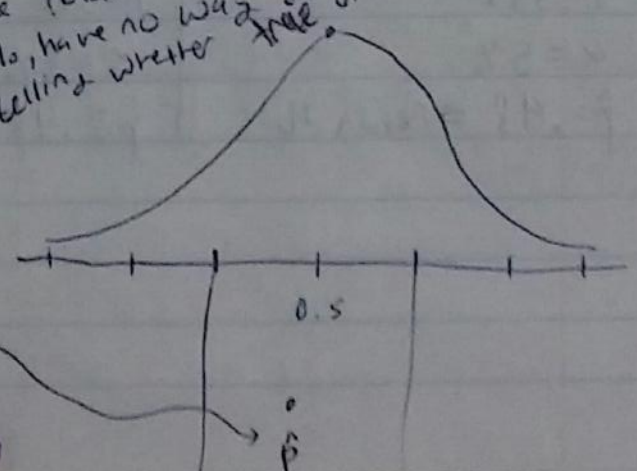 do, have no way
telling whether true
0.5
p̂